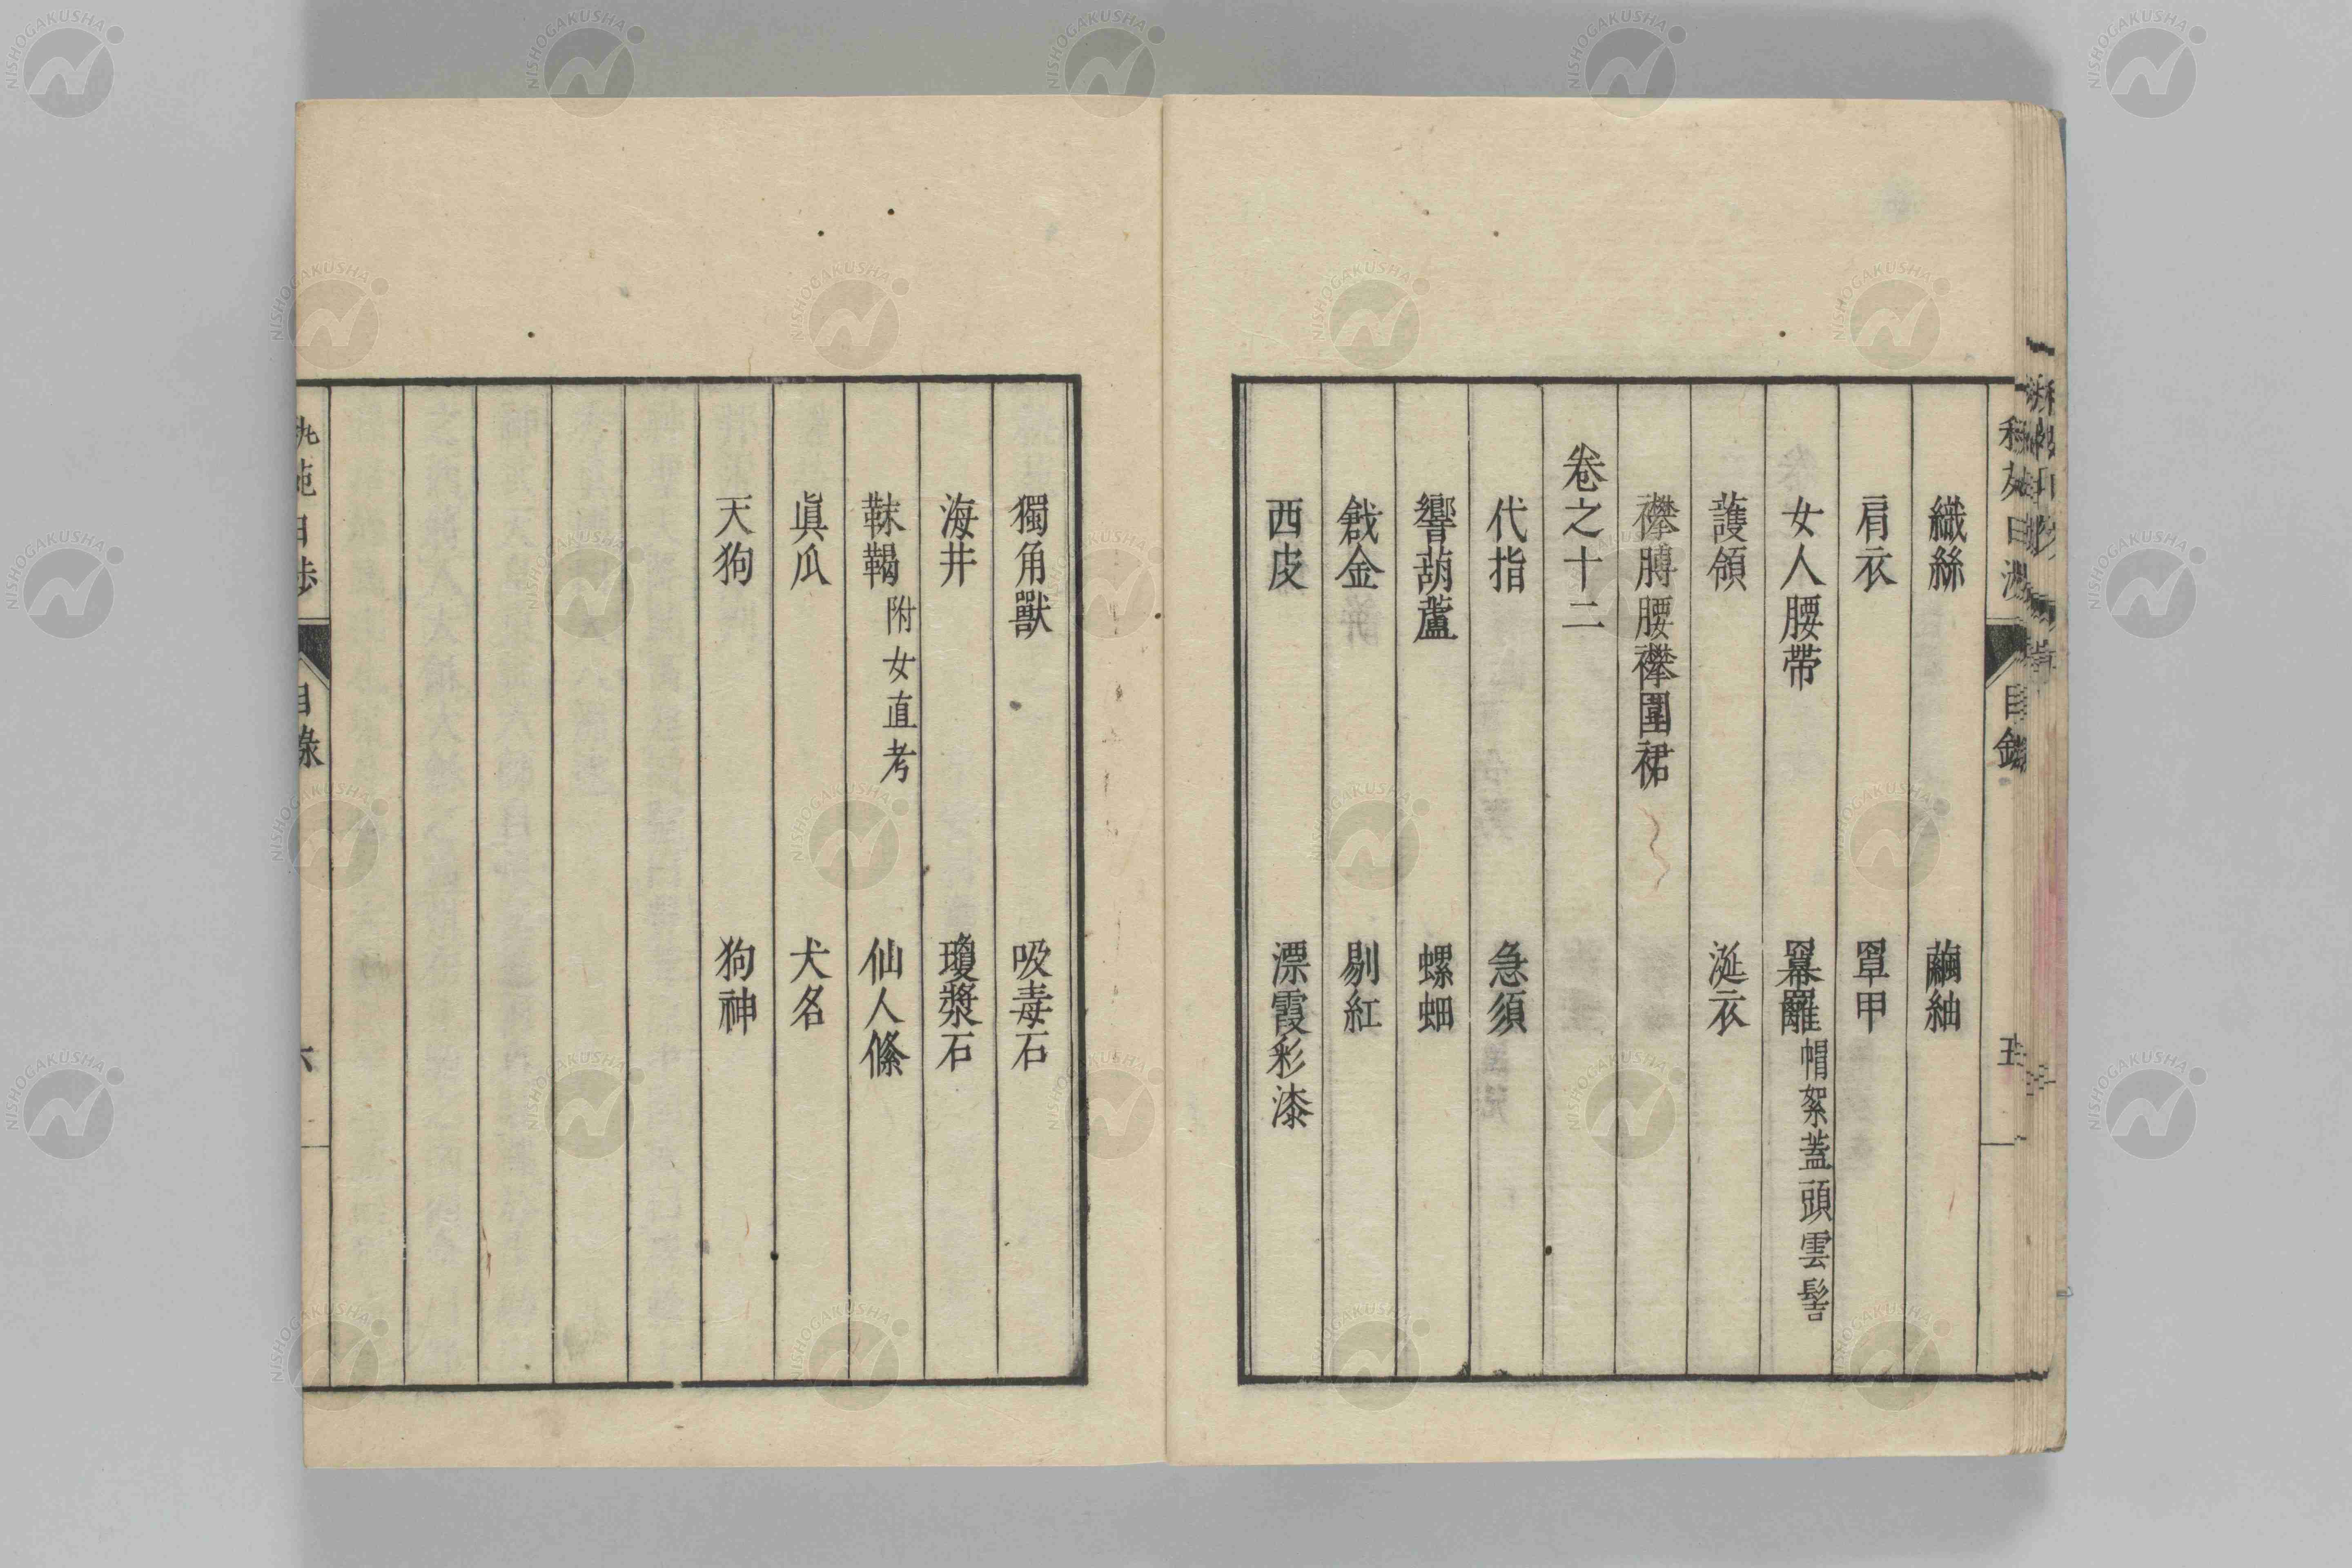 織絲　繭紬
肩衣　罩甲
女人腰帶　羃䍦帽絮蓋頭雲髻
護領　涎衣
襻膊腰襻圍裙
卷之十二
代指　急須
響葫蘆　螺蚰
戧金　剔紅
西皮　漂霞彩漆
目錄
五
獨角獸　吸毒石
海井　瓊漿石
靺鞨附女直考　仙人絛
眞瓜　犬名
天狗　狗神
秇苑日涉
目錄
六
NISHOGAKUSHA